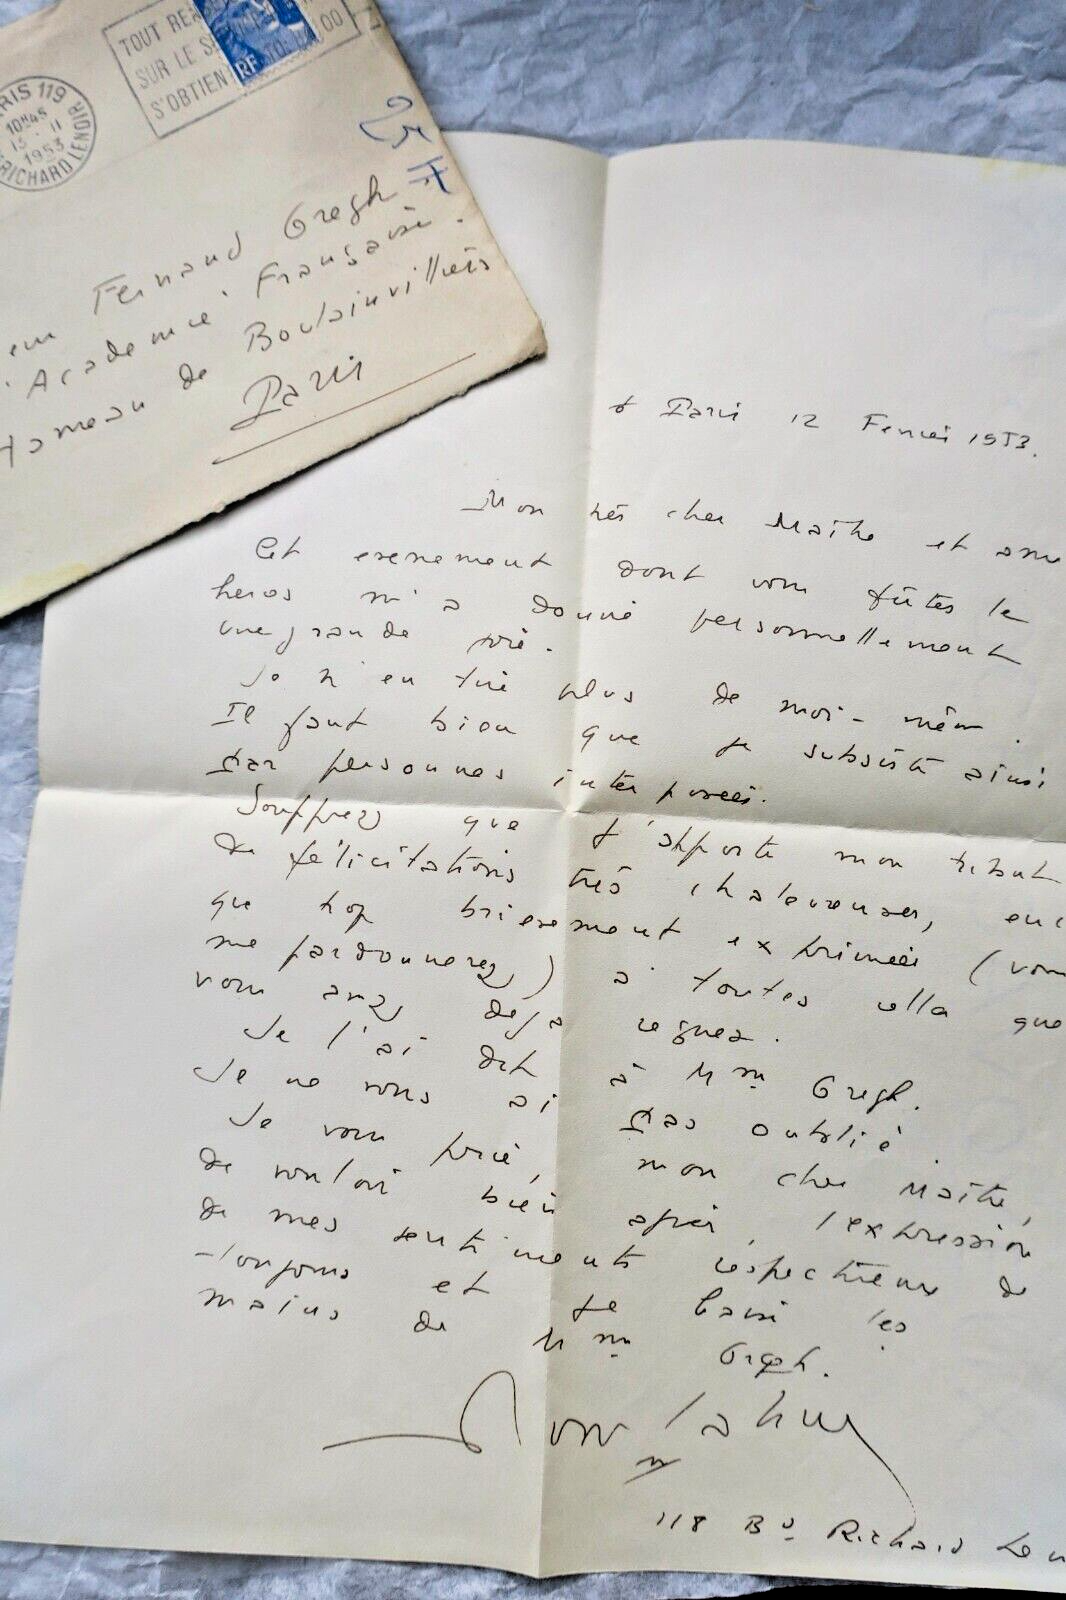 TOUT RE
SUR LE S
S'OBTIEN
00
RF
RIS 119
10H45
13 - 11
1953
RICHARD LENOIR
eur Fernand Gregh
Académie Française.
Hameau de Boulainvilliers
Paris
Paris 12 Fevrier 1953.
Mon très cher Maître et ami
Cet evenement dont vous fûtes le
heros m'a donné personnellement
une grande joie.
Je n'en tire plus de moi-même.
Il faut bien que je subsiste ainsi
par personnes interposées.
Souffrez que j'apporte mon tribut
de félicitations très chaleureuses, enc
que trop brievement exprimées (vous
me pardonnerez) à toutes celles que
vous avez deja reçues.
Je l'ai dit à Mme Gregh.
Je ne vous ai pas oublié.
Je vous prie, mon cher Maître,
de vouloir bien agréer l'expression
de mes sentiments respectueux de
toujours et je baise les
mains de Mme Gregh.
118 Bd Richard Len